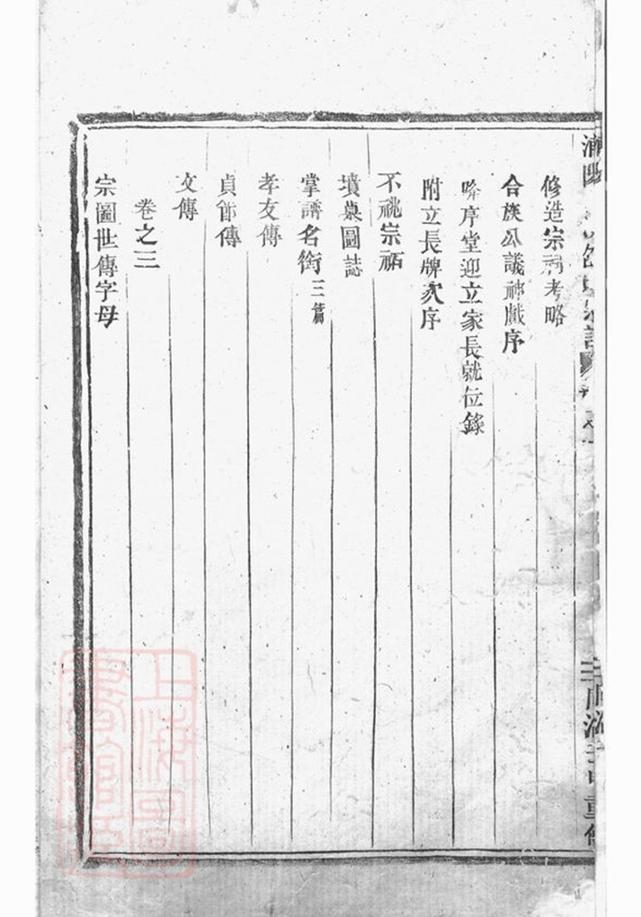 修造宗祠考略
合族公議神戲序
降序堂迎立家長就位錄
附立長牌次序
不祧宗祏
墳塋圖誌
掌譜名銜三篇
孝友傳
貞節傳
文傳
卷之三
宗圖世傳字母
上海圖書館藏